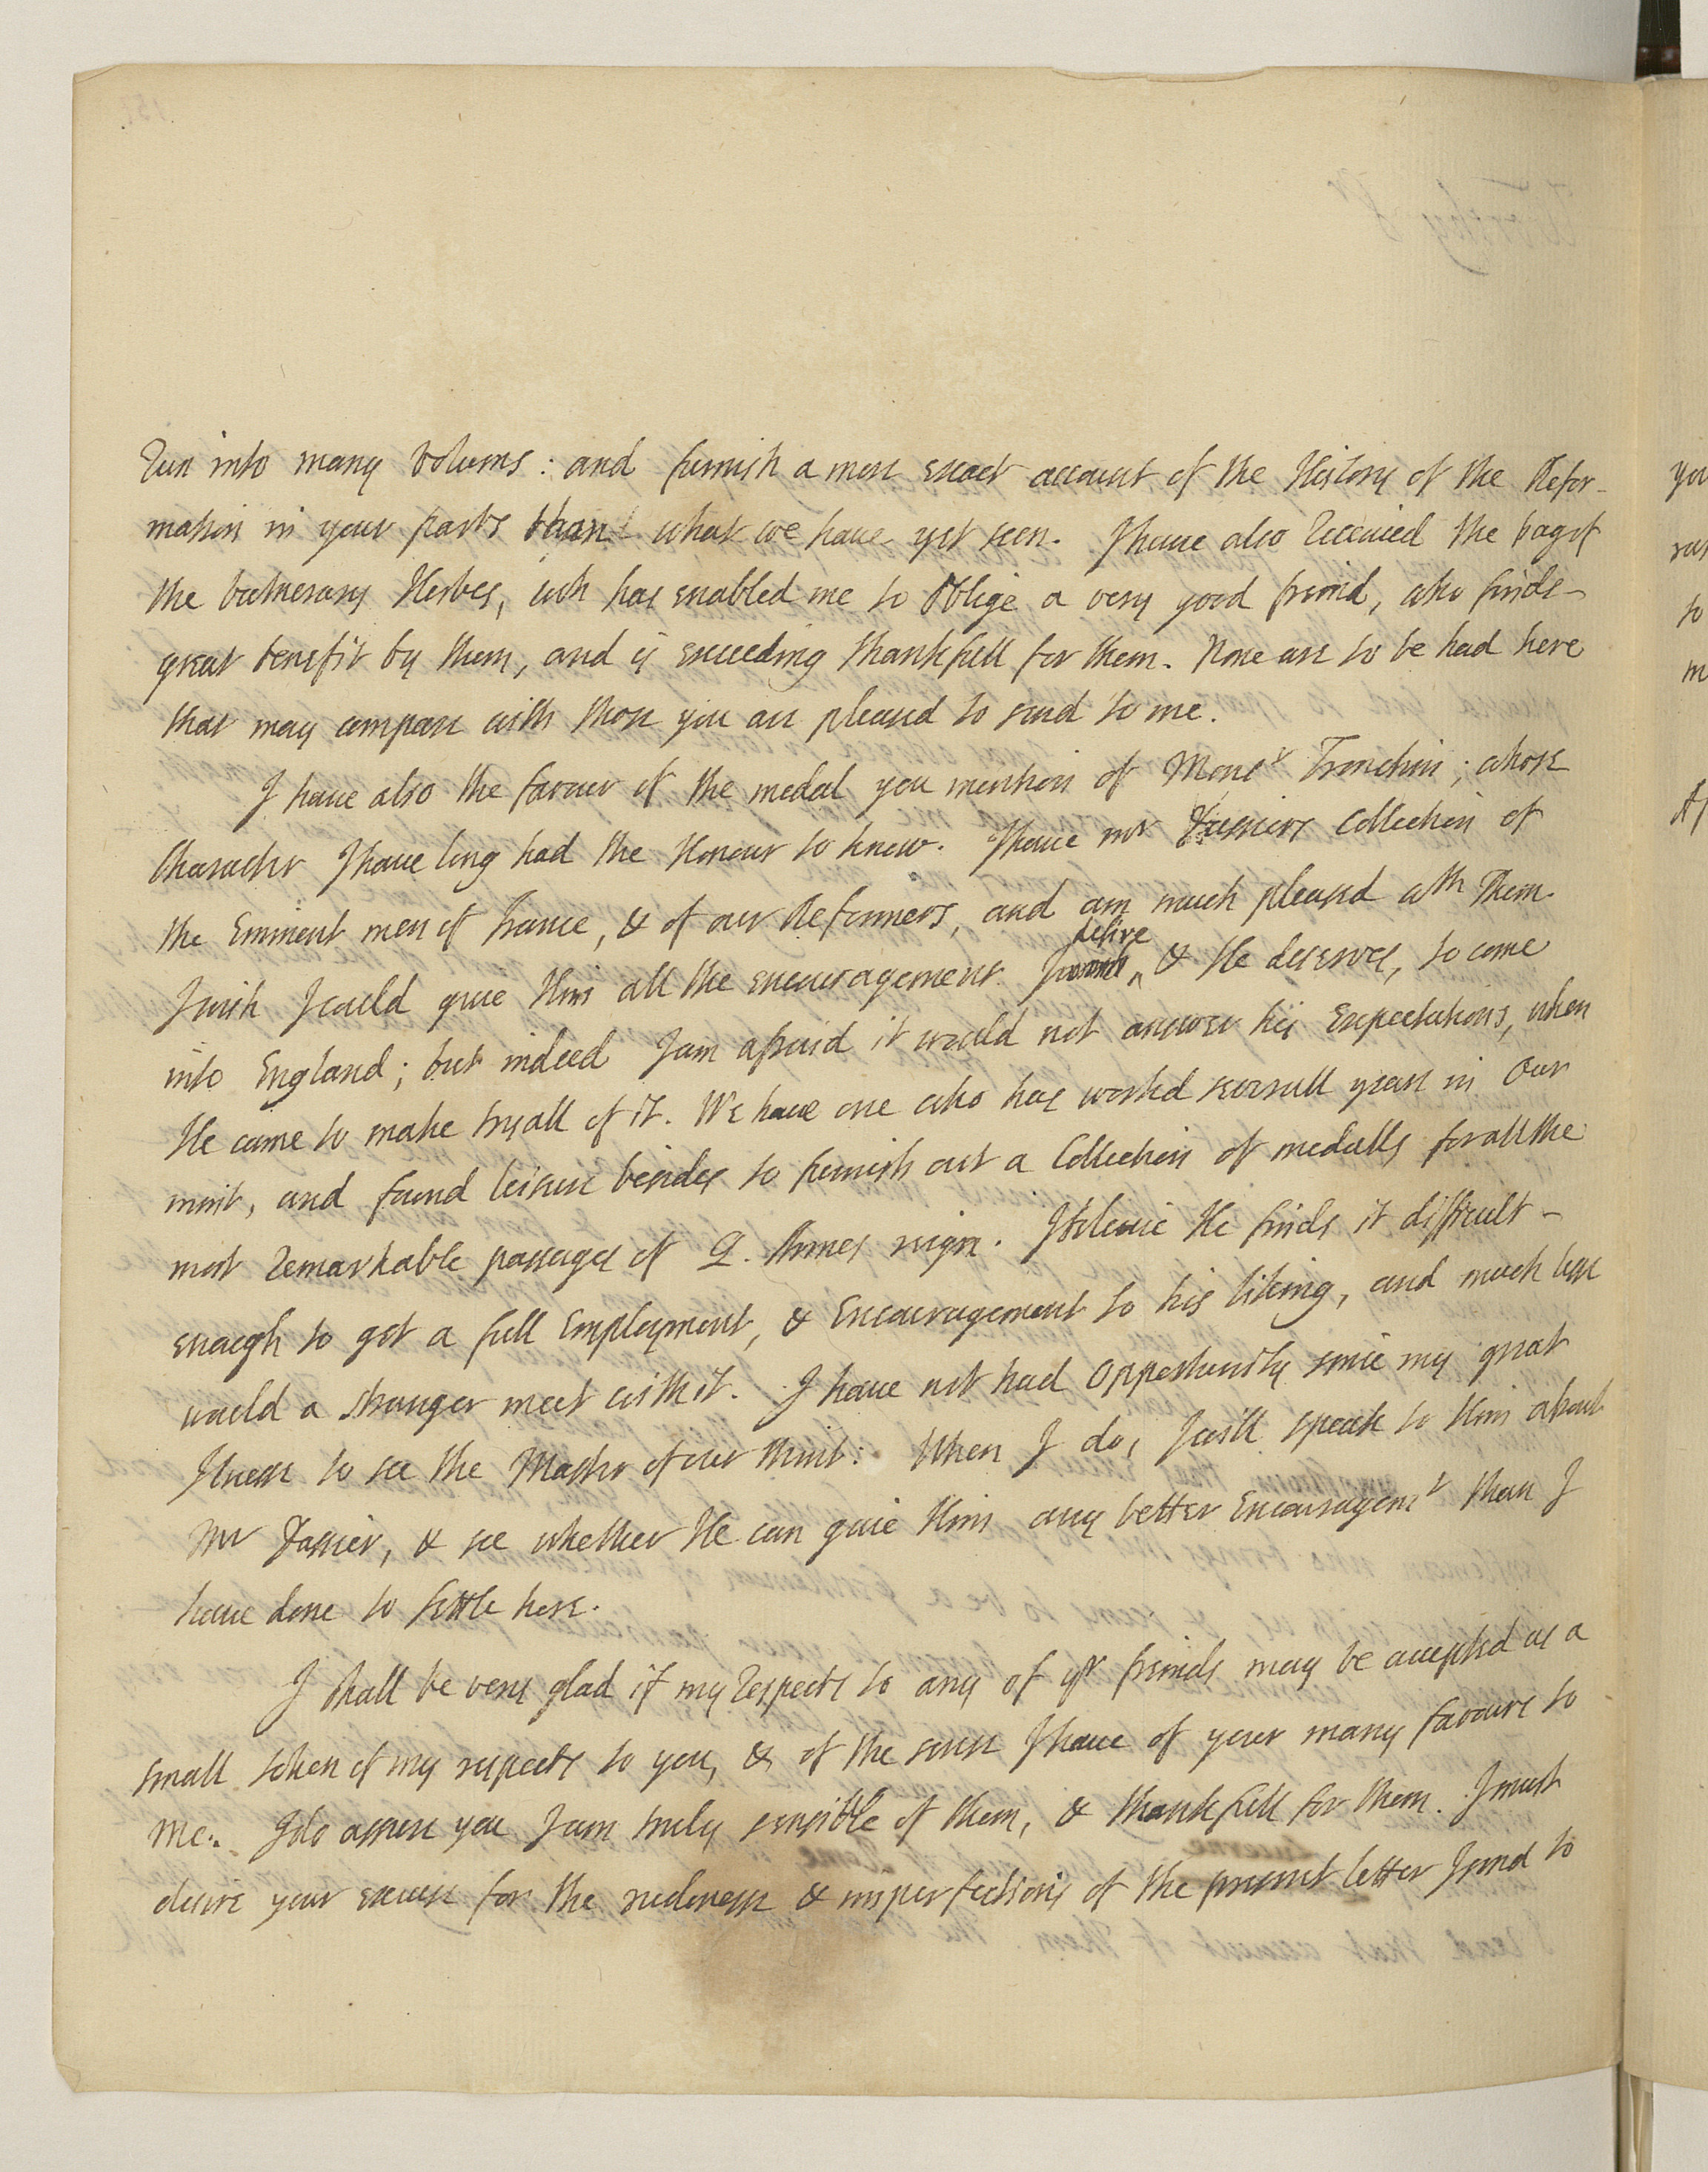 run into many Volums: and furnish a more exact account of the History of the Refor-
mation in your parts than what we have yet seen. I have also received the bag of
the vulnerary Herbes, wch has enabled me to Oblige a very good freind, who finds
great benefit by them, and is exceeding thankfull for them. None are to be had here
that may compare with those you are pleased to send to me.
I have also the favour of the medal you mention of Monsr Tronchin; whose
Character I have long had the Honour to know. I have mr Dassiers Collection of
the Eminent men of France, & of our Reformers, and am much pleased wth Them.
desire
I wish I could give Him all the encouragement I & He deserves, to come
into England; but indeed I am afraid it would not answer his Expectations, when
He came to make tryall of it. We have one who has worked severall years in Our
mint, and found leisure besides to furnish out a Collection of medalls for all the
most remarkable passages of Q. Annes reign. I beleive He finds it difficult
enough to get a full Employment, & Encouragement to his liking, and much less
would a stranger meet with it. I have not had Opportunity since my great
Ilness to see the Master of our Mint: When I do, I will speak to Him about
Mr Dassier, & see whether He can give Him any better Encouragemt than I
have done to settle here.
I shall be very glad if my respects to any of yr freinds may be accepted as a
small token of my respects to you, & of the sense I have of your many favours to
me. I do assure you I am truly sensible of them, & thankfull for them. I must
desire your excuse for the rudeness & imperfections of the present letter I send to